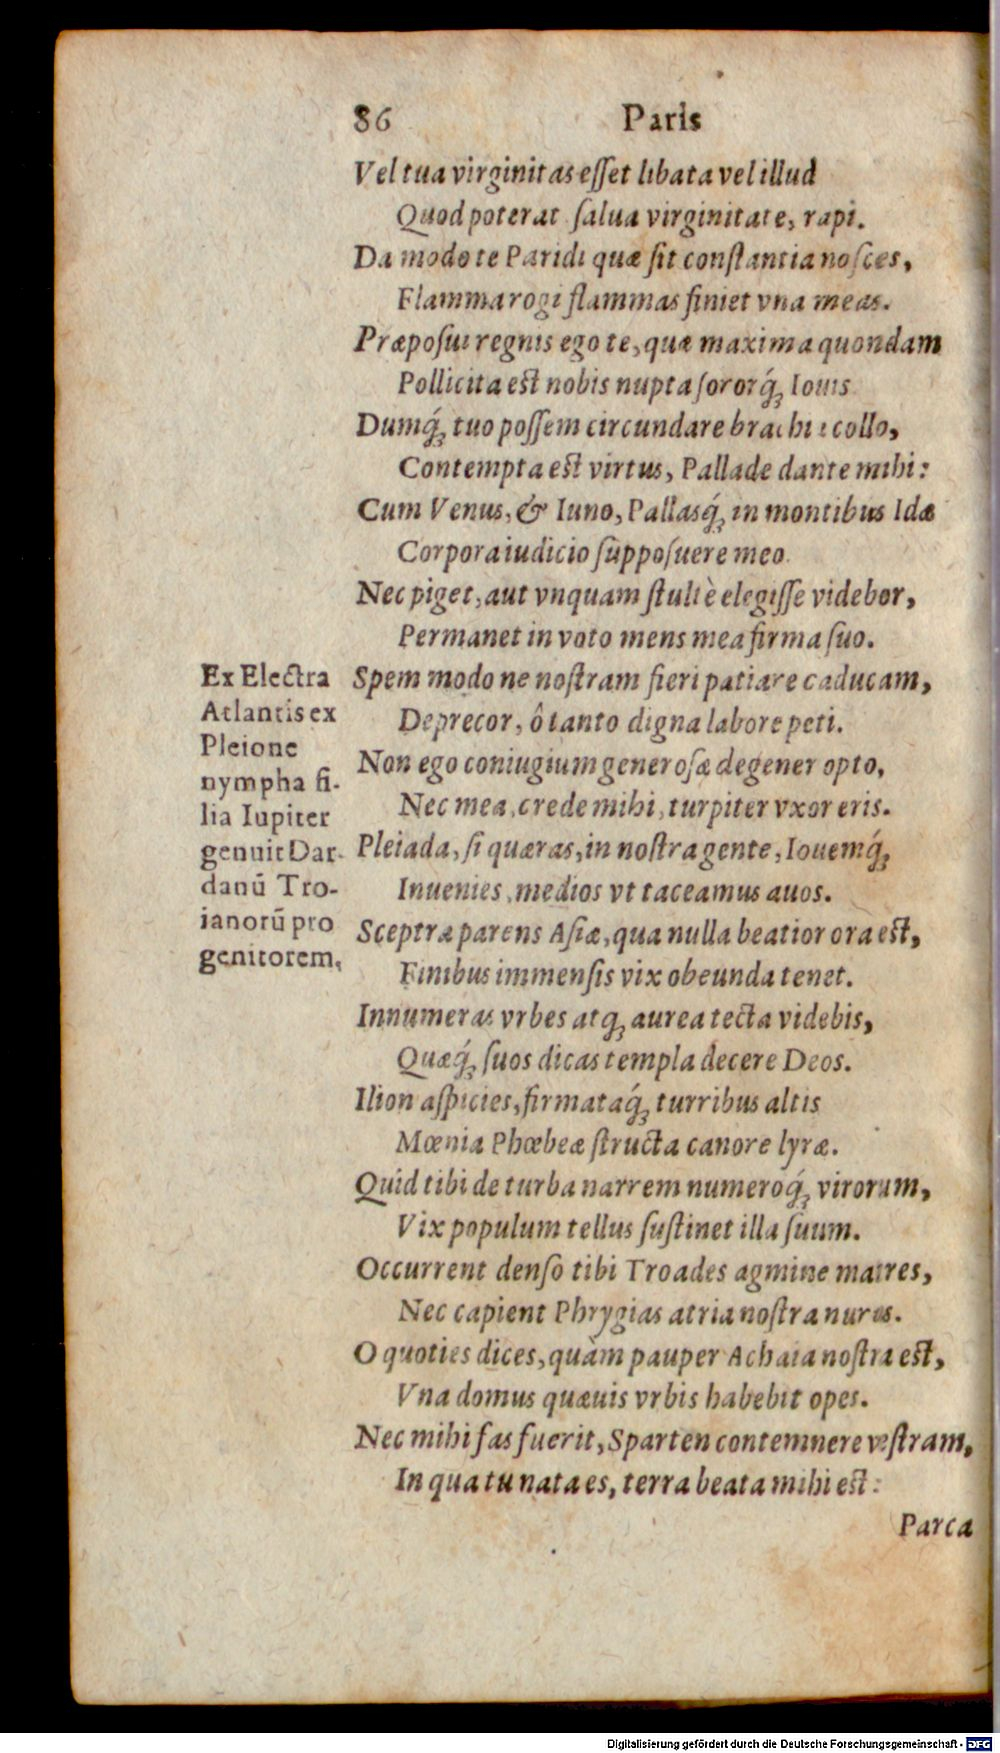 86 Paris
Vel tua virginitas eſſet libata vel illud
Quod poterat ſalua virginitate, rapi.
Da modo te Paridi quæ ſit conſtantia noſces,
Flamma rogi flammas finiet vna meas.
Præpoſui regnis ego te, quæ maxima quondam
Pollicita est nobis nupta ſororq́; Iouis
Dumq́; tuo poſſem circundare brachia collo,
Contempta est virtus, Pallade dante mihi:
Cum Venus, & Iuno, Pallasq́; in montibus Idæ
Corpora iudicio ſuppoſuere meo.
Nec piget, aut vnquam ſtultè elegiſſe videbor,
Permanet in voto mens mea firma ſuo.
Spem modo ne noſtram fieri patiare caducam,
Deprecor, ô tanto digna labore peti.
Non ego coniugium generoſæ degener opto,
Nec mea, crede mihi, turpiter vxor eris.
Pleiada, ſi quæras, in noſtra gente, Iouemq́;
Inuenies, medios vt taceamus auos.
Sceptra parens Aſiæ, qua nulla beatior ora est,
Finibus immenſis vix obeunda tenet.
Innumeras vrbes atq; aurea tecta videbis,
Quæq́; ſuos dicas templa decere Deos.
Ilion aſpicies, firmataq́; turribus altis
Mœnia Phœbeæ ſtructa canore lyræ.
Quid tibi de turba narrem numeroq́; virorum,
Vix populum tellus ſuſtinet illa ſuum.
Occurrent denſo tibi Troades agmine matres,
Nec capient Phrygias atria noſtra nurus.
O quoties dices, quàm pauper Achaia noſtra est,
Vna domus quæuis vrbis habebit opes.
Nec mihi fas fuerit, Sparten contemnere veſtram,
In qua tu nata es, terra beata mihi est:
Parca
Ex Electra
Atlantis ex
Pleione
nympha fi-
lia Iupiter
genuit Dar-
danũ Tro-
ianorũ pro
genitorem,
Digitalisierung gefördert durch die Deutsche Forschungsgemeinschaft - DFG